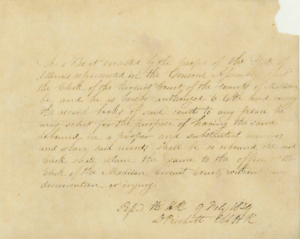 Be it enacted by the people of the State of
Illinois represented in the General Assembly that
the Clerk of the Circuit Court of the County of Madison
be, and he is hereby authorized to let the
record books of said court to any person he
may select for the purpose of having the same
rebound in a proper and substantial manner
and when said record shall be so rebound
shall return the same to the office of the
Clerk of the Madison circuit court without
or injury
Feb. 1829
D Prickett Clk H R